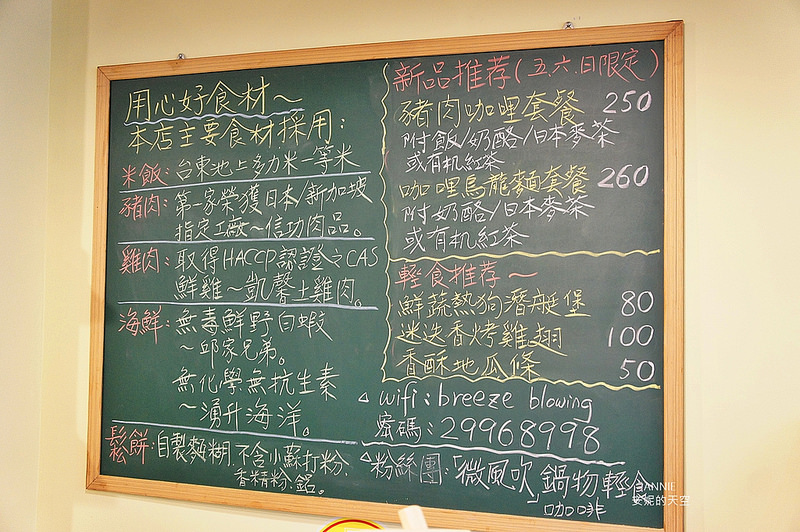 用心好食材~
本店主要食材採用:
米飯:台東池上多力米一等米
豬肉:第一家榮獲日本/新加坡
指定工廠~信功肉品。
雞肉:取得HACCP認證之CAS
鮮雞~凱馨土雞肉。
海鮮:無毒鮮野白蝦
~邱家兄弟。
無化學無抗生素
~湧升海洋。
鬆餅:自製麵糊.不含小蘇打粉、
香精粉.鋁。
新品推荐(五.六.日限定)
豬肉咖哩套餐 250
附飯/奶酪/日本麥茶
或有机紅茶
咖哩烏龍麵套餐 260
附奶酪/日本麥茶
或有机紅茶
輕食推荐~
鮮蔬熱狗潛艇堡 80
迷迭香烤雞翅 100
香酥地瓜條 50
△ wifi:breeze blowing
密碼:29968998
△粉絲團:「微風吹」鍋物輕食
咖啡
ANNIE
安妮的天空